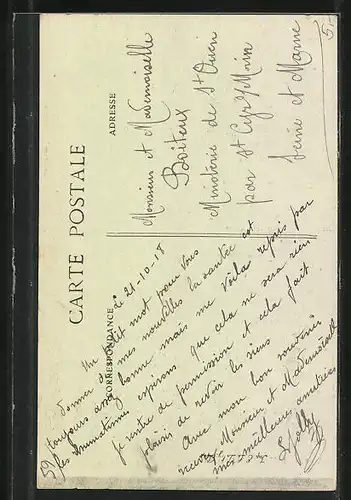 CARTE POSTALE
CORRESPONDANCE
ADRESSE
le 21-10-18
Un petit mot pour vous
donner de mes nouvelles la santée est
toujours assez bonne mais me voila repris par
les rhumatismes esperons que cela ne sera rien
je rentre de permission et cela fait
plaisir de revoir les siens
Avec mon bon souvenir
recevez Monsieur et Mademoiselle
mes meilleures amitiées
Jolly
59
Monsieur et Mademoiselle
Boiteux
Minoterie de St Ouen
par St Cyr s/ Morin
Seine et Marne
5.-